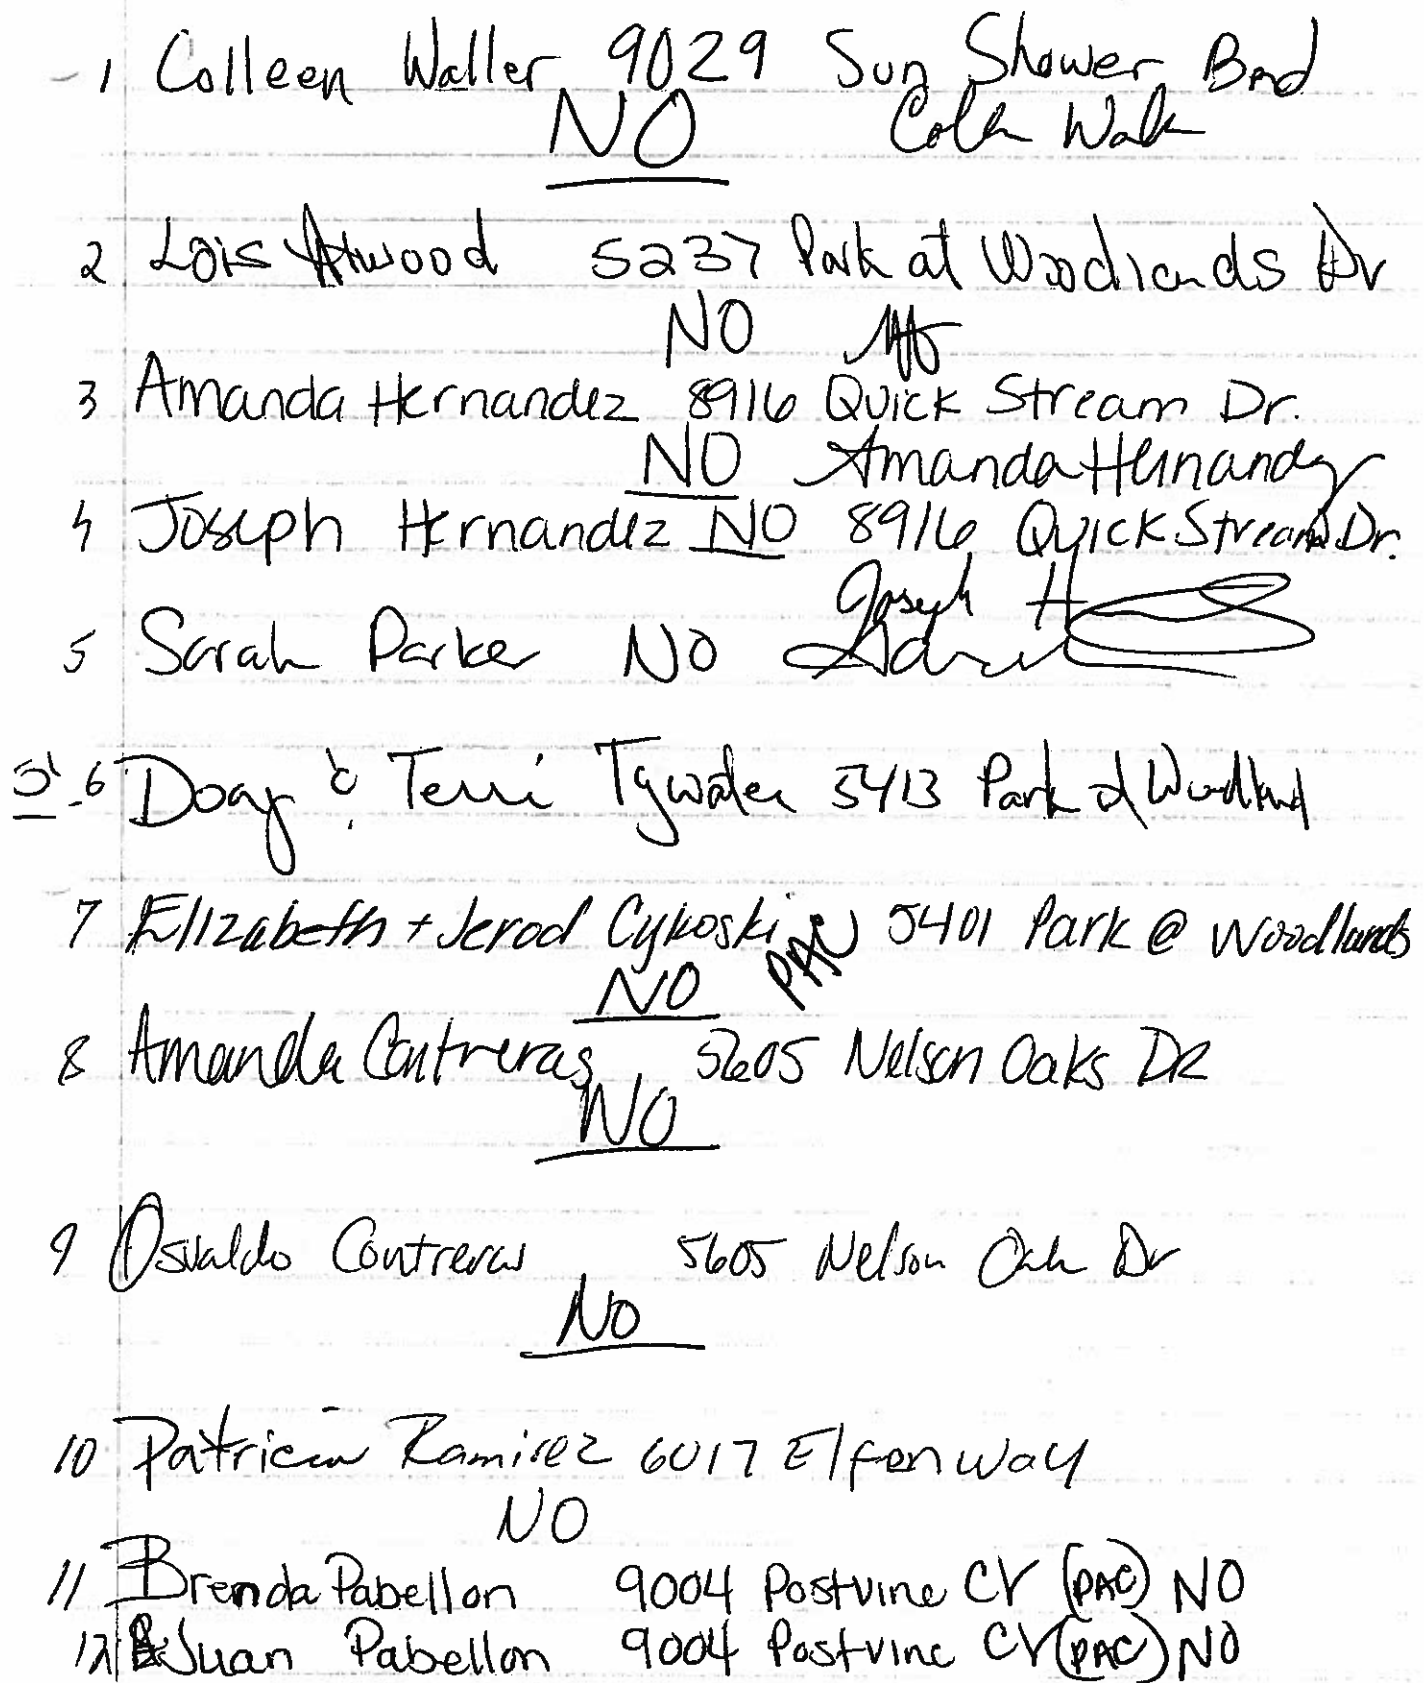 1 Colleen Waller 9029 Sun Shower Bnd
NO
2 Lois Atwood 5237 Park at Woodlands Dr
NO
3 Amanda Hernandez 8916 Quick Stream Dr.
NO Amanda Hernandez
4 Joseph Hernandez NO 8916 Quick Stream Dr.
Joseph H
5 Sarah Parker NO
6 Doug & Terri Tygwater 5413 Park at Woodland
7 Elizabeth + Jerod Cykoski PAC 5401 Park @ Woodlands
NO
8 Amanda Contreras 5605 Nelson Oaks DR
NO
9 Osvaldo Contreras 5605 Nelson Oak Dr
No
10 Patricia Ramirez 6017 Elfen Way
NO
11 Brenda Pabellon 9004 Postvine Cr (PAC) NO
12 Juan Pabellon 9004 Postvine Cr (PAC) NO